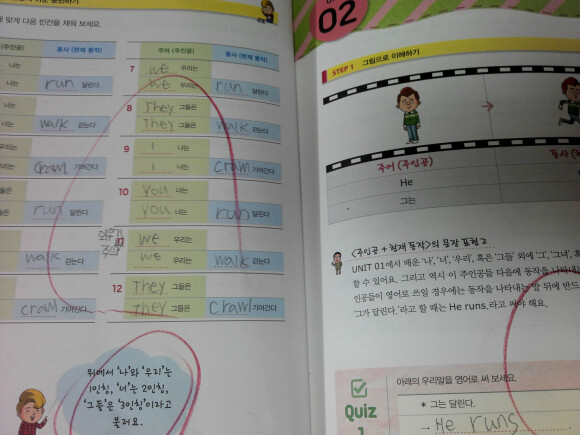 맞게 다음 빈칸을 채워 보세요.
(주인공) 동사 (현재 동작)
나는
나는 run 달린다
너는
너는 walk 걷는다
우리는
우리는 crawl 기어간다
그들은
그들은 run 달린다
walk 걷는다
crawl 기어간다
주어 (주인공) 동사 (현재 동작)
7 we 우리는
we 우리는 run 달린다
8 They 그들은
They 그들은 walk 걷는다
9 I 나는
I 나는 crawl 기어간다
10 you 너는
you 너는 run 달린다
we 우리는
we 우리는 walk 걷는다
12 They 그들은
They 그들은 crawl 기어간다
위에서 '나'와 '우리'는
1인칭, '너'는 2인칭,
'그들'은 '3인칭'이라고
불러요.
02
STEP 1 그림으로 이해하기
주어 (주인공) 동사 (현
He
그는
<주인공 + 현재 동작>의 문장 표현 2
UNIT 01에서 배운 '나', '너', '우리', 혹은 '그들' 외에 '그', '그녀', 혹
할 수 있어요. 그리고 역시 이 주인공들 다음에 동작을 나타내는
인공들이 영어로 쓰일 경우에는 동작을 나타내는 말 뒤에 반드
'그가 달린다.'라고 할 때는 He runs.라고 써야 해요.
Quiz
1
아래의 우리말을 영어로 써 보세요.
* 그는 달린다.
→ He runs